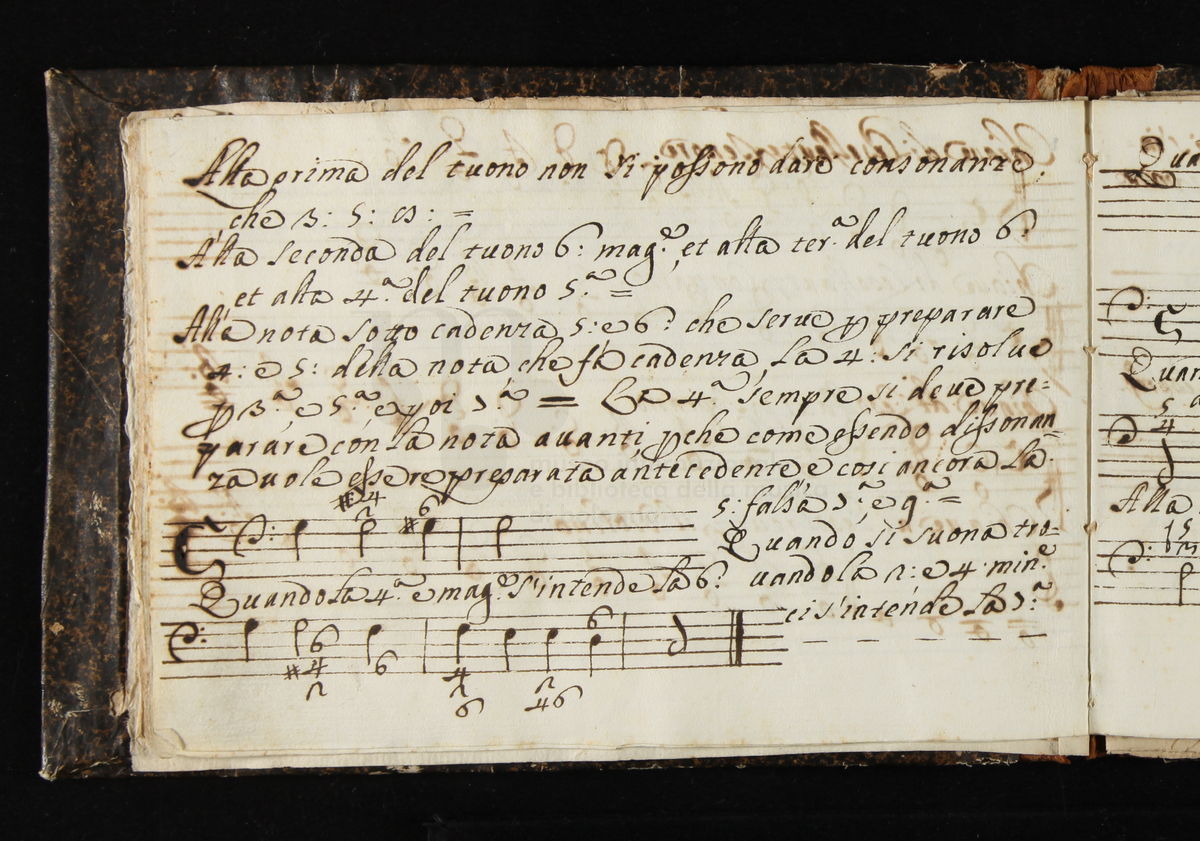 Alla prima del tuono non si possono dare consonanze
che 3: 5: 8: =
Alla seconda del tuono 6: mag.re et alla ter.a del tuono 6:
et alla 4.a del tuono 5.a =
Alla nota sotto cadenza 5: e 6: che serve p preparare
4: e 5: della nota che fa cadenza, la 4: si risolve
p 3.a e 5.a e poi 7.a = Le 4.a sempre si deve pre-
parare con la nota avanti pche come essendo dissonan-
za vole essere preparata antecedente e cosi ancora la
5: falsa 7.a e 9.a =
#4
2
6
#
Quando si suona tro-
Quando la 4.a e mag.re s'intende la 6:
vando la 2: e 4 min.e
ci s'intende la 7.a
6
#4
2
6
4
2
6
2
46
6
Qua
Quan
5
4
Alla